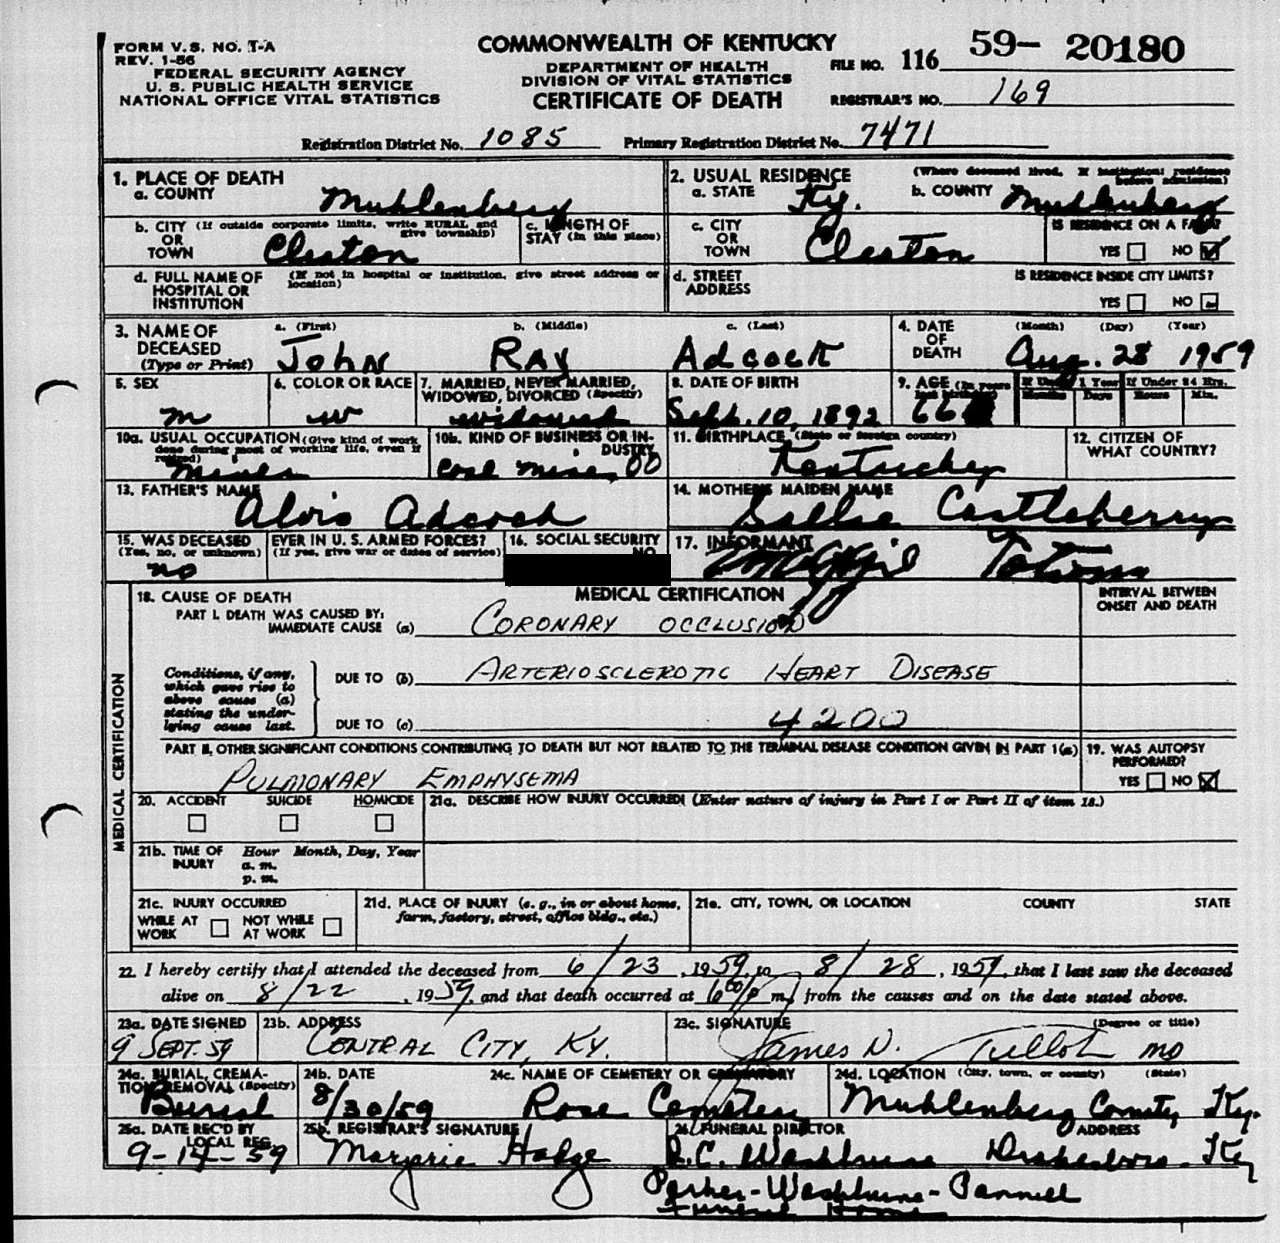 FORM V.S. NO. 1-A
REV. 1-56
FEDERAL SECURITY AGENCY
U. S. PUBLIC HEALTH SERVICE
NATIONAL OFFICE VITAL STATISTICS
COMMONWEALTH OF KENTUCKY
DEPARTMENT OF HEALTH
DIVISION OF VITAL STATISTICS
CERTIFICATE OF DEATH
FILE NO. 116 59- 20180
REGISTRAR'S NO. 169
Registration District No. 1085 Primary Registration District No. 7471
1. PLACE OF DEATH
a. COUNTY Muhlenberg
2. USUAL RESIDENCE (Where deceased lived. If institution: residence before admission)
a. STATE Ky. b. COUNTY Muhlenberg
b. CITY (If outside corporate limits, write RURAL and give township)
OR
TOWN Cleaton
c. LENGTH OF STAY (in this place)
c. CITY
OR
TOWN Cleaton
IS RESIDENCE ON A FARM?
YES NO
d. FULL NAME OF HOSPITAL OR INSTITUTION (If not in hospital or institution, give street address or location)
d. STREET ADDRESS
IS RESIDENCE INSIDE CITY LIMITS?
YES NO
3. NAME OF DECEASED (Type or Print)
a. (First) b. (Middle) c. (Last)
John Ray Adcock
4. DATE OF DEATH (Month) (Day) (Year)
Aug. 28 1959
5. SEX
m
6. COLOR OR RACE
w
7. MARRIED, NEVER MARRIED, WIDOWED, DIVORCED (Specify)
widowed
8. DATE OF BIRTH
Sept. 10, 1892
9. AGE (In years last birthday)
66
If Under 1 Year If Under 24 Hrs.
Months Days Hours Min.
10a. USUAL OCCUPATION (Give kind of work done during most of working life, even if retired)
miner
10b. KIND OF BUSINESS OR INDUSTRY
coal mine
11. BIRTHPLACE (State or foreign country)
Kentucky
12. CITIZEN OF WHAT COUNTRY?
13. FATHER'S NAME
Adcock
14. MOTHER'S MAIDEN NAME
Sallie Castleberry
15. WAS DECEASED EVER IN U. S. ARMED FORCES?
(Yes, no, or unknown) (If yes, give war or dates of service)
no
16. SOCIAL SECURITY NO.
17. INFORMANT
18. CAUSE OF DEATH MEDICAL CERTIFICATION
INTERVAL BETWEEN ONSET AND DEATH
PART I. DEATH WAS CAUSED BY:
IMMEDIATE CAUSE (a) CORONARY OCCLUSION
Conditions, if any, which gave rise to above cause (a) stating the underlying cause last.
DUE TO (b) ARTERIOSCLEROTIC HEART DISEASE
DUE TO (c) 4200
MEDICAL CERTIFICATION
PART II. OTHER SIGNIFICANT CONDITIONS CONTRIBUTING TO DEATH BUT NOT RELATED TO THE TERMINAL DISEASE CONDITION GIVEN IN PART 1(a)
PULMONARY EMPHYSEMA
19. WAS AUTOPSY PERFORMED?
YES NO
20. ACCIDENT SUICIDE HOMICIDE
21a. DESCRIBE HOW INJURY OCCURRED! (Enter nature of injury in Part I or Part II of item 18.)
21b. TIME OF INJURY Hour Month, Day, Year
a. m.
p. m.
21c. INJURY OCCURRED
WHILE AT WORK NOT WHILE AT WORK
21d. PLACE OF INJURY (e. g., in or about home, farm, factory, street, office bldg., etc.)
21e. CITY, TOWN, OR LOCATION COUNTY STATE
22. I hereby certify that I attended the deceased from 6/23, 1959, to 8/28, 1959, that I last saw the deceased
alive on 8/22, 1959, and that death occurred at 6:00 p m, from the causes and on the date stated above.
23a. DATE SIGNED
9 SEPT. 59
23b. ADDRESS
CENTRAL CITY, KY.
23c. SIGNATURE (Degree or title)
James N. MD
24a. BURIAL, CREMATION, REMOVAL (Specify)
Burial
24b. DATE
8/30/59
24c. NAME OF CEMETERY OR CREMATORY
Rose Cemetery
24d. LOCATION (City, town, or county) (State)
Muhlenberg County, Ky.
25a. DATE REC'D BY LOCAL REG.
9-14-59
25b. REGISTRAR'S SIGNATURE
Marjorie Hodge
26. FUNERAL DIRECTOR ADDRESS
Washburne Drakesboro, Ky
Parker-Washburne-
Funeral Home